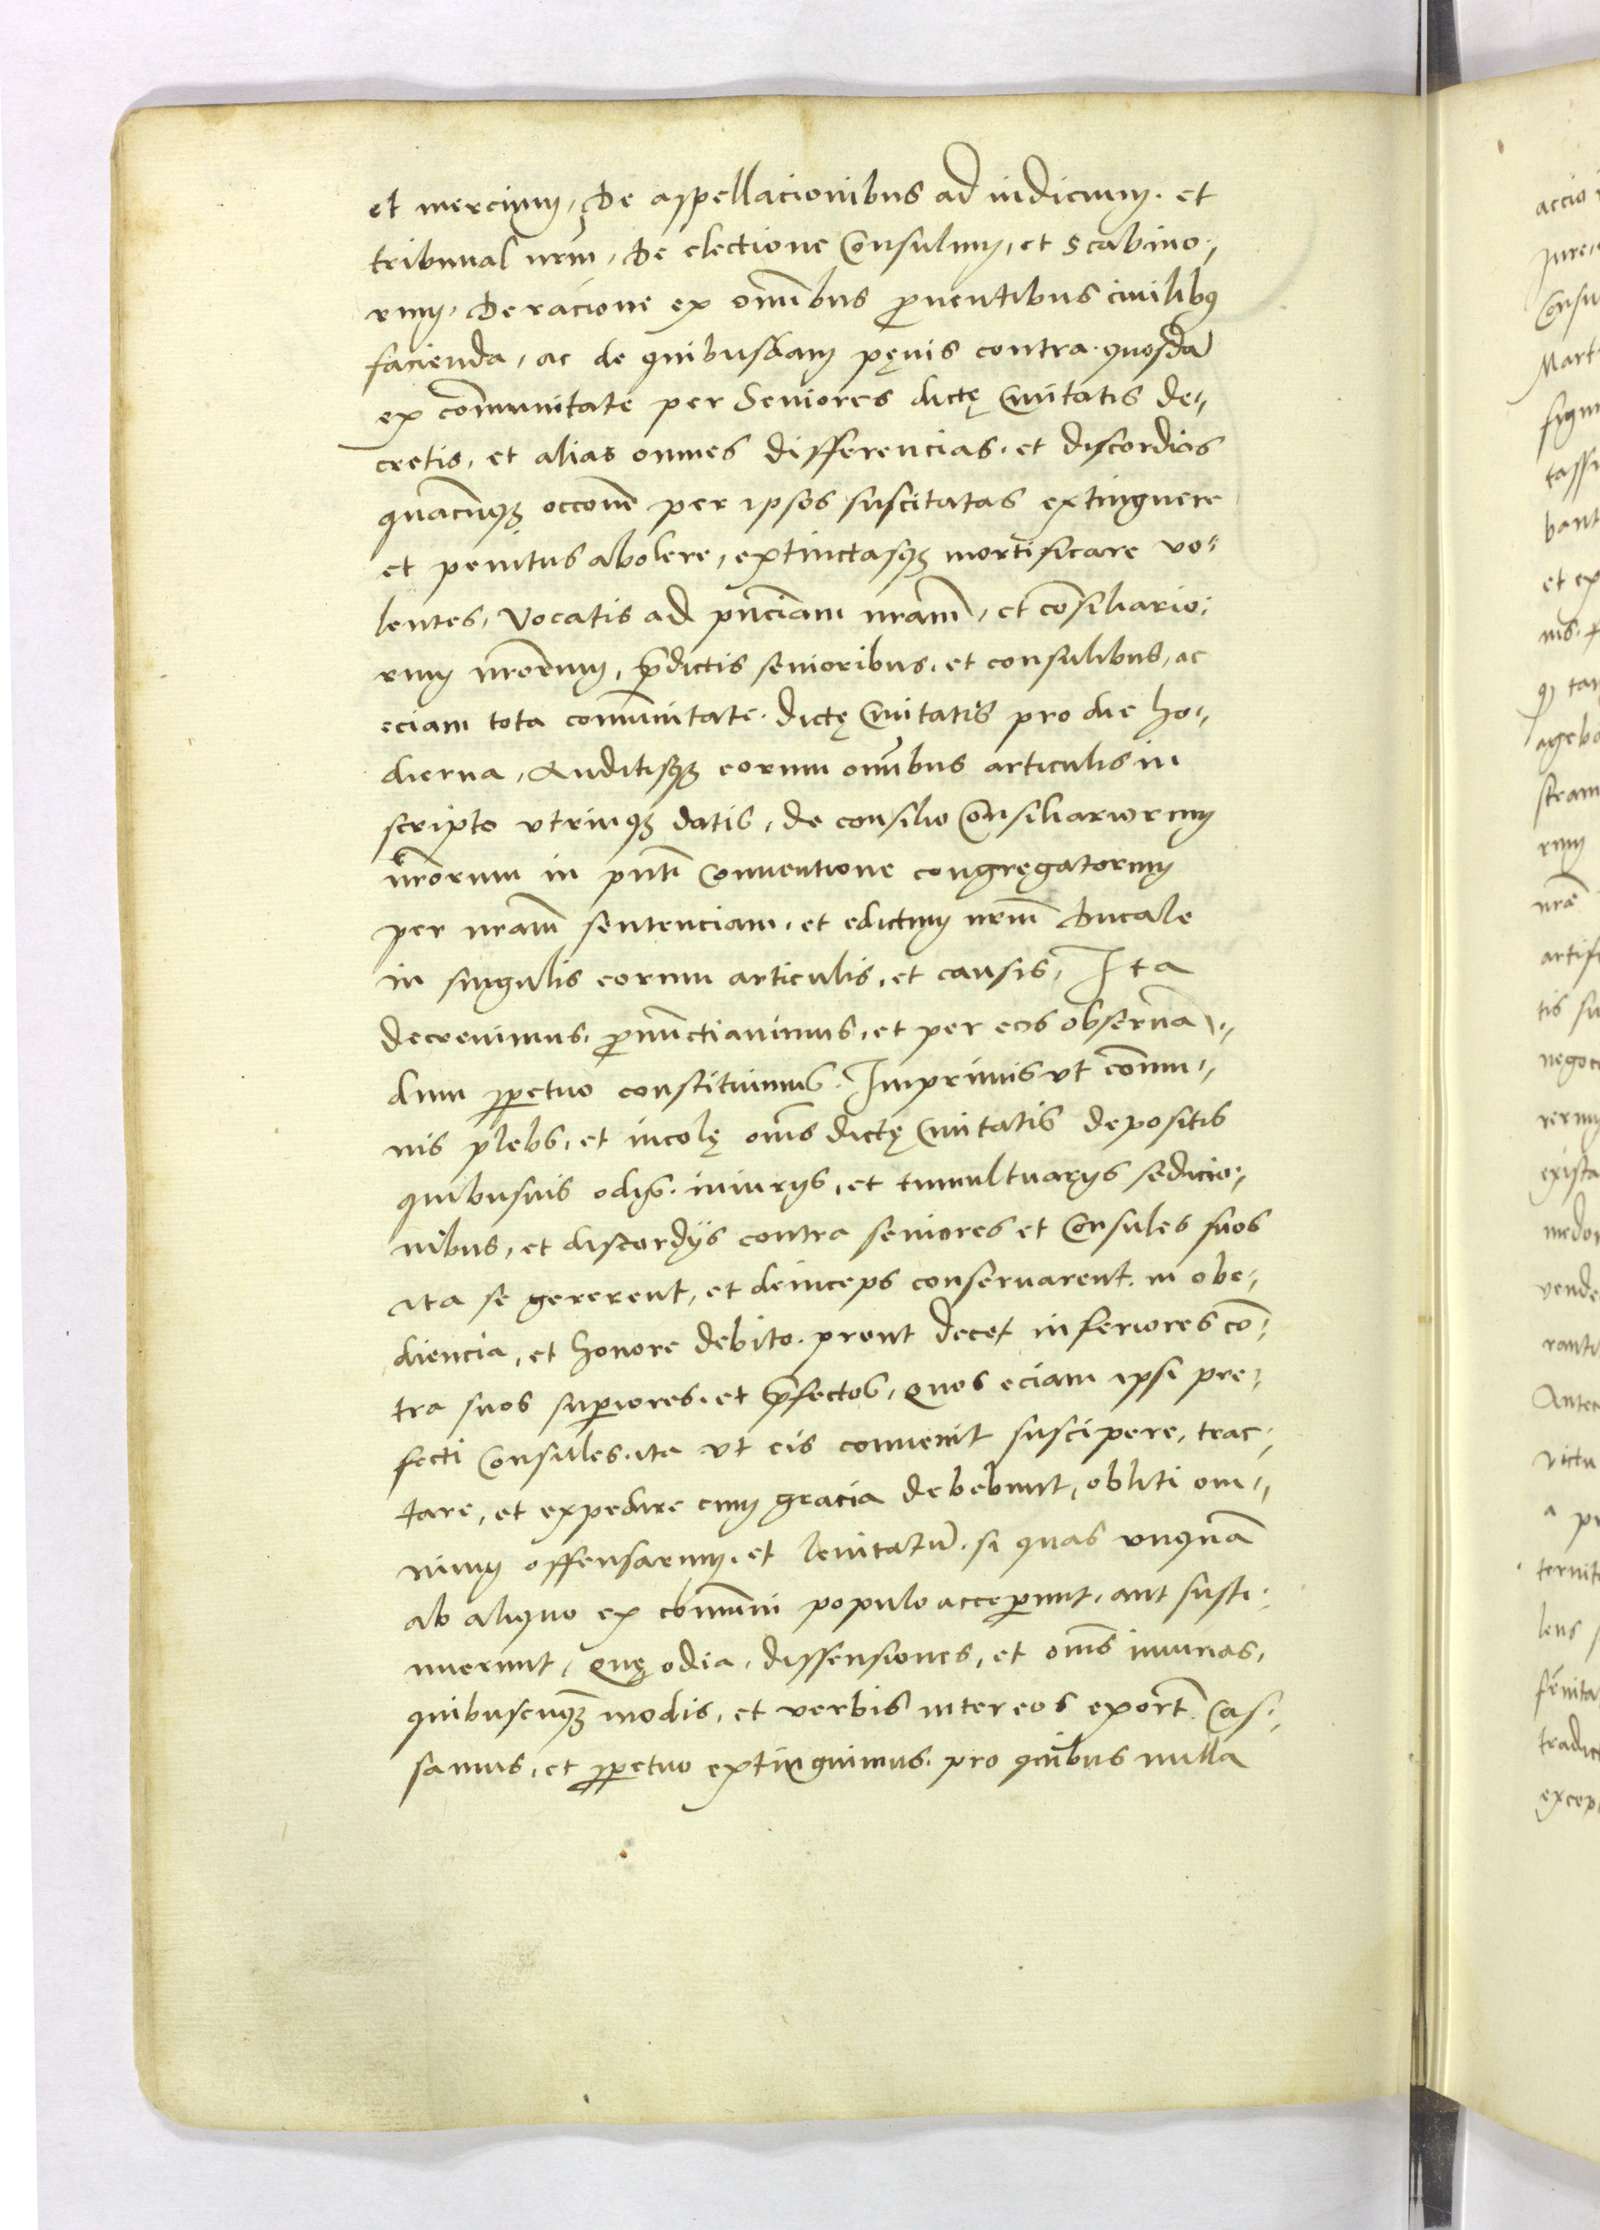 et mercium, De appellacionibus ad iudicium. et
tribunal nr̄m, De electione Consulum, et Scabino,,
rum, De racione ex om̄ibus ꝓuentibus ciuilibꝰ
facienda, ac de quibusdam pęnis contra quosdā
ex com̄unitate per Seniores dictę Ciuitatis de,,
cretis, et alias omnes differencias, et discordias
quacūqꝫ occōne per ipsos suscitatas extinguere
et penitus abolere, extinctasqꝫ mortificare vo,,
lentes, Vocatis ad pn̄ciam nr̄am, et cōsiliario,,
rum nr̄orum, p̄dictis senioribus, et consulibus, ac
eciam tota com̄unitate dictę Ciuitatis pro die ho,,
dierna, Auditisqꝫ eorum om̄ibus articulis in
scripto vtrinqꝫ datis, de consilio Consiliariorum
nr̄orum in pn̄ti Conuentione congręgatorum
per nr̄am sentenciam, et edictum nr̄m Ducale
in singulis eorum articulis, et causis, Ita
decreuimus, ꝓnūctiauimus, et per eos obseruā,,
dum ꝑpetuo constituimus. Imprimis vt com̄u,,
nis plebs, et incolę om̄s dictę Ciuitatis depositis
quibusuis odijs. iniurijs, et tumultuarijs sedicio,,
nibus, et discordijs contra seniores et Consules suos
ita se gererent, et deinceps conseruarent in obe,,
diencia, et honore debito. prout decet inferiores cō,,
tra suos suꝑiores. et p̄fectos, Quos eciam ipsi pre,,
fecti Consules. ita vt eis conuenit suscipere, trac,,
tare, et expedire cum gracia debebunt, obliti om,,
nium offensarum, et leuitatū. si quas vnquā
ab aliquo ex com̄uni populo acceꝑunt, aut susti,,
nuerunt, Quę odia, dissensiones, et om̄s iniurias,
quibuscūqꝫ modis, et verbis inter eos exort̄. Cas,,
samus, et ꝑpetuo extinguimus. pro quibus nulla